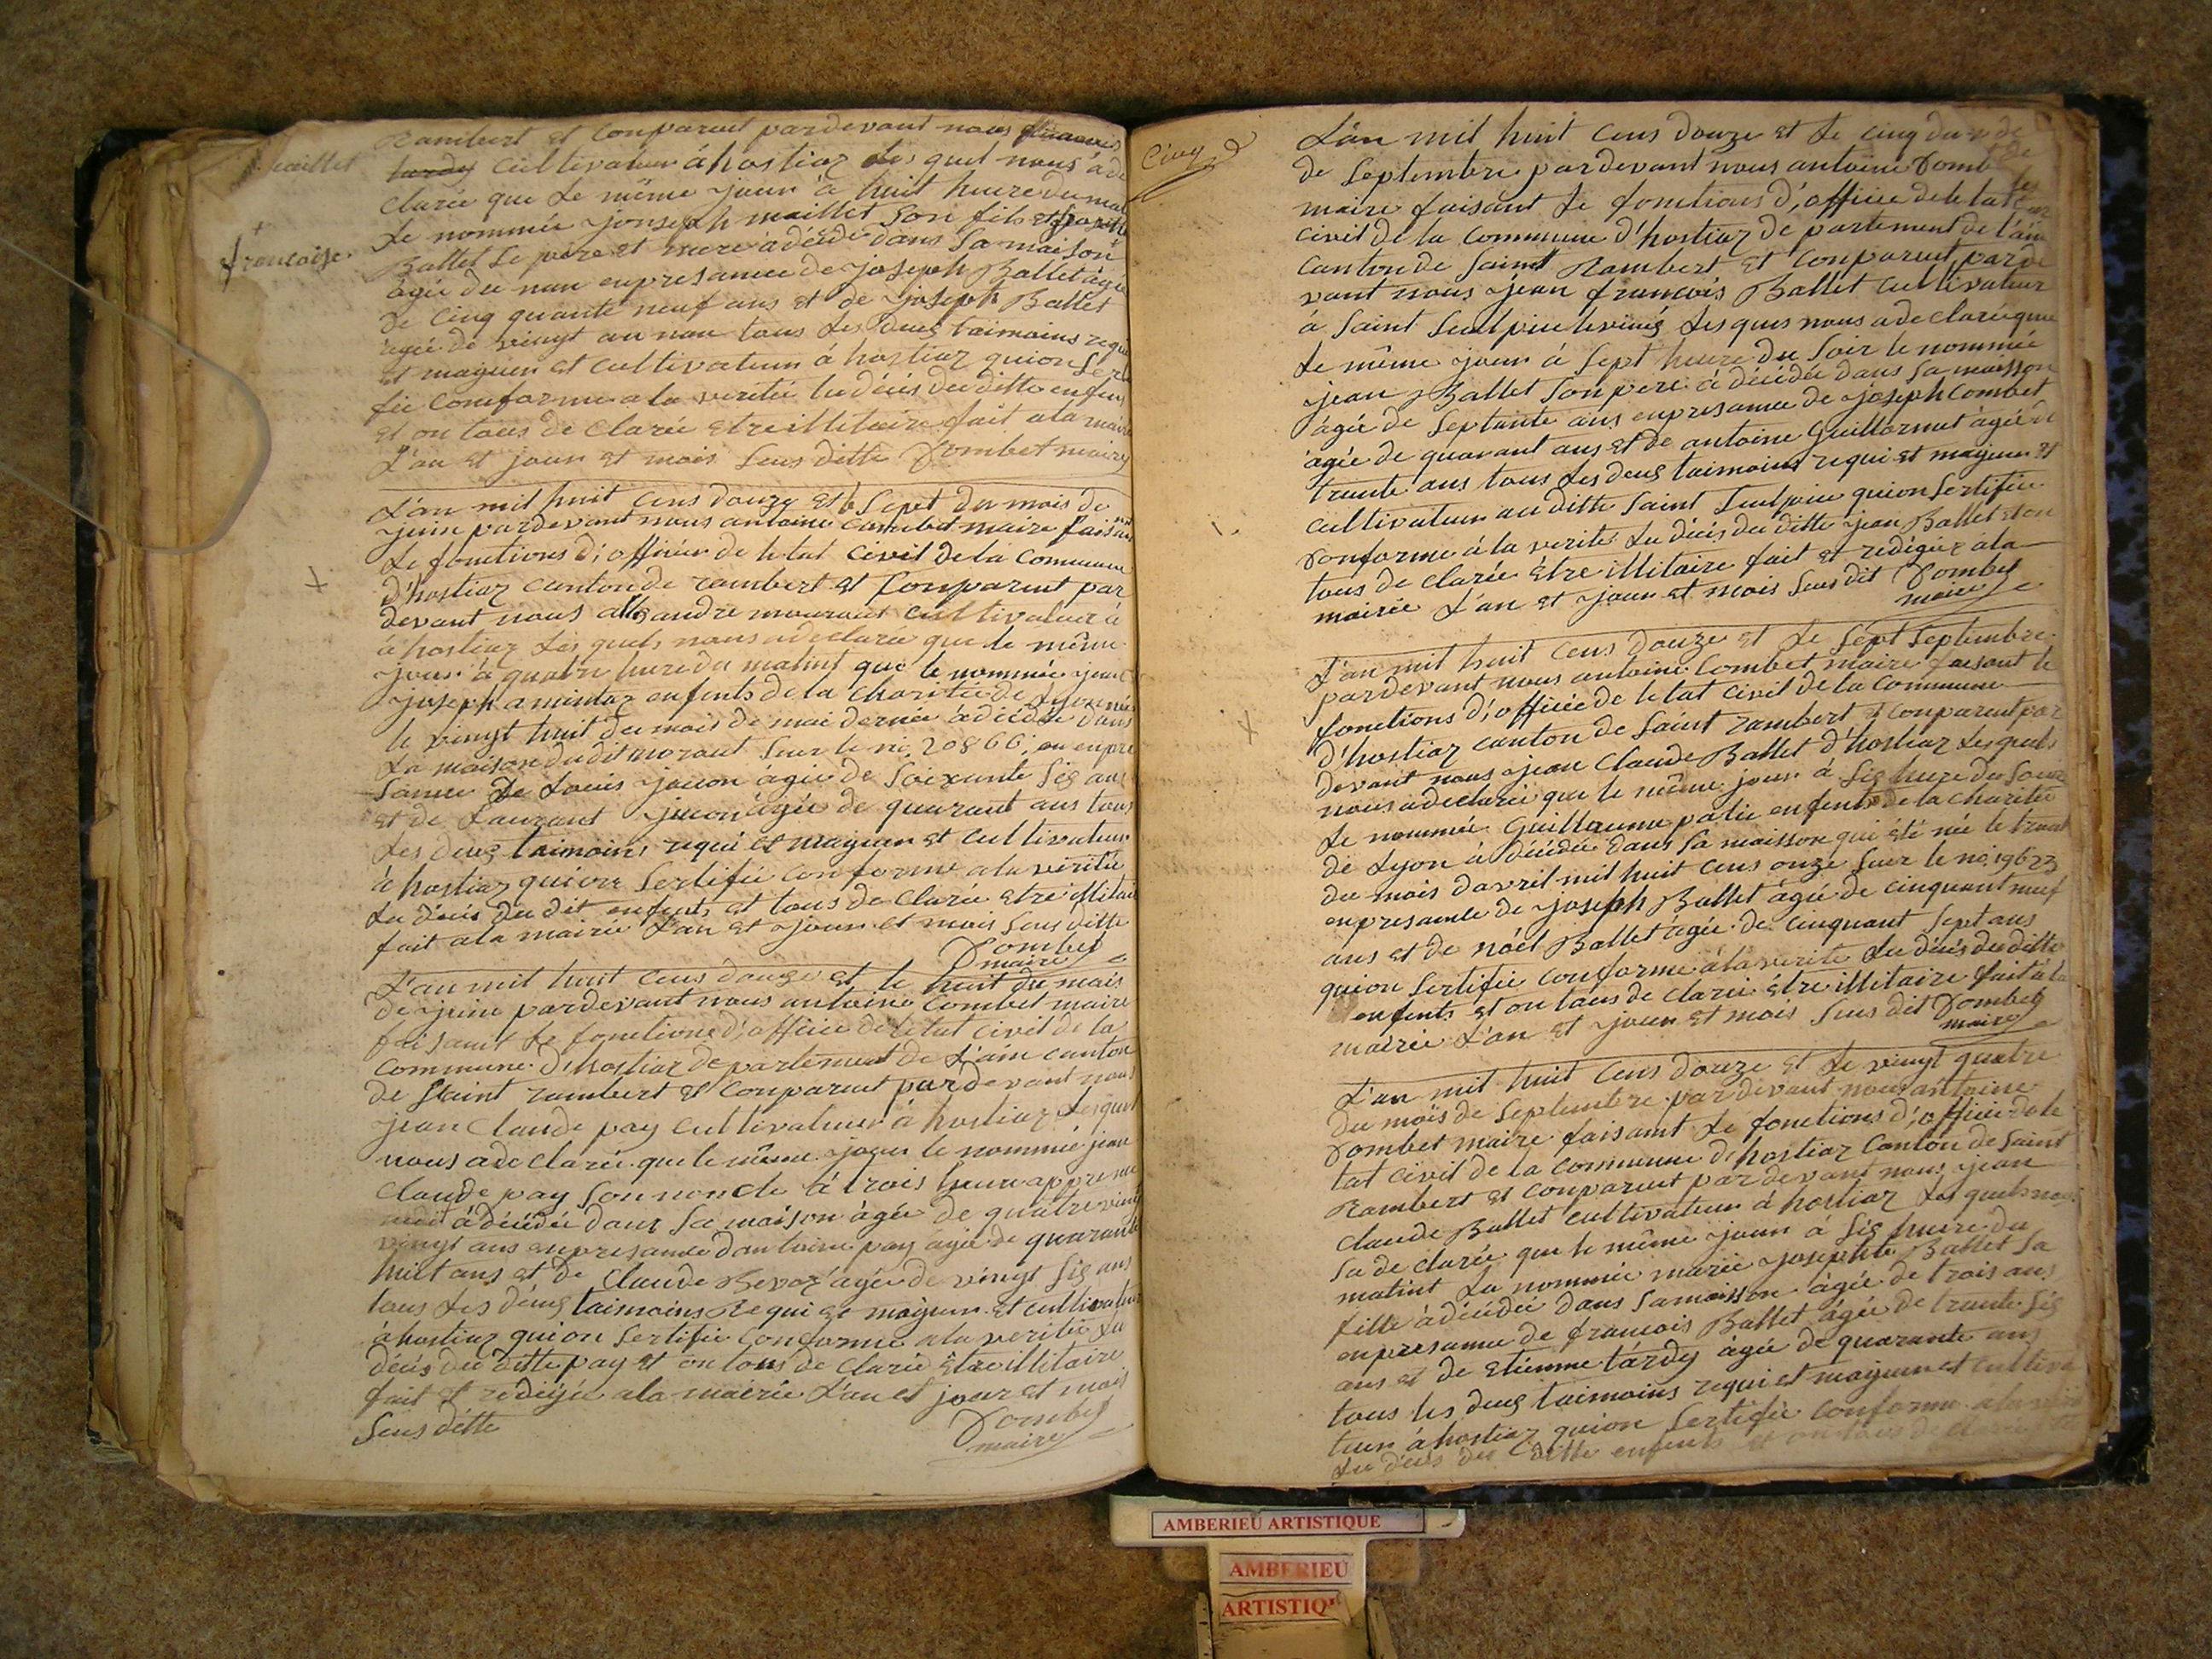 maillet
francoise
Rambert et Conpareut pardevant nous
tardy Cultivateur à hostiaz les quel nous à de
clarée que le même jour à huit heure du mat
le nommée jonseph maillet son fils et
Ballet le père et mere à décédé dans sa maison
agée du nan enpresance de joseph Ballet agée
de cinq quante neuf ans et de joseph Ballet
agée de vingt au nan tous les deus taimoins requi
et mageun et cultivateur à hostiaz quion Serti
fie Comforme a la veritée le decis du ditte enfens
et on tous de Clarée etre illitaire fait a la mairie
L'an et jour et mois Sens ditte Combet maire
L'an mil huit Cens douze et le Sept du mois de
juin pardevant nous antoine Combet maire faisant
le fonctions d'officier de letat Civil de la Commune
D'hostiaz Canton de rambert et Conpareut par
devant nous allexandre mouraut Cultivateur à
à hostiaz les quels nous adeclarée que le même
jour à quatre hure du matint que le nommée jean
joseph amintaz enfents de la Charitée de Lyon née
le vingt huit du mois de mai dernée à décédée dans
La maison dudit moraut Sur le no, 20866, en enpre
sance De Louis juenon àgée de Soixante Sis ans
et de Laurant juenon àgée de quarant ans tous
Les deus taimoins requi et mageun et Cultivateur
à hostiaz quion Sertifié Conforme a la véritée
Le décis du dit enfents et tous de Clarée etre illitair
fait a la mairie L'an et jour et mois Sens ditte
Combet
maire
L'an mil huit Cens douze et le huit du mois
de juin pardevant nous antoine Combet maire
faisant le fonctions d'officiée de letat Civil de la
Commune D'hostiaz departement de L'ain canton
de Staint rambert et Conpareut pardevant nous
jean Claude pay Cultivateur à hostiaz Les quel
nous adeclarée que le même jour le nommée jean
Claude pay Son noncle à trois heure appre
midi à décédée dans Sa maison àgée de quatre vint
vingt ans enpresance dantoine pay agée de quarante
huit ans et de Claude Bevoz àgée de vingt Sis ans
tous Les deus taimoins Requi et mageun et Cultivateur
à hostiaz quion Sertifié Conforme a la veritée Lu
decis du ditte pay et on tous de Clarée être illitaire
fait et redigée a la mairie L'an et jour et mois
Sens ditte
Combet
maire
Cinq
L'an mil huit Cens douze et le cinq du
de Septembre pardevant nous antoine Comb
maire faisant le fonctions d'officiée de le tat
Civil de la Commune d'hostiaz departement de l'ain
Canton de Saint Rambert et Conpareut parde
vant nous jean francois Ballet Cultivateur
à Saint Seulpice les ques nous adeclarée que
Le même jour à Sept heure du Soir le nommée
jean Ballet Son pere à décédée dans sa maisson
agée de Septante ans enpresance de joseph Combet
àgée de quarant ans et de antoine Guillermet àgée de
trante ans tous les deus taimoins requi et mageun et
Cultivateur au ditte Saint Seulpice quion Sertifiée
Conforme à la verité Lu décis du ditte jean Ballet et on
tous de Clarée être illitaire fait et redigée a la
mairie L'an et jour et mois Sens dit Combet
maire
L'an mil huit Cens douze et le Sept Septembre
pardevant nous antoine Combet maire faisant le
fonctions d'officiée de le tat Civil de la Commune
d'hostiaz canton de Saint rambert et Conpareut par
devant nous jean Claude Ballet d'hostiaz Les quels
nous adeclarée que le même jour à Sis hure du Soir
Le nommée Guillaume patie enfents de la Charitée
de Lyon à décédée dans Sa maisson qui été née le trant
du mois davril mil huit Cens onze Sur le no, 19623
enpresance de joseph Ballet àgée de cinquant neuf
ans et de noël Ballet agée de cinquant Sept ans
quion Sertifiée Conforme à la verité Lu décis du ditte
enfents et on tous de Clarée être illitaire fait à la
mairie L'an et jour et mois Sens dit Combet
maire
L'an mil huit Cens douze et le vingt quatre
du mois de Septembre pardevant nous antoine
Combet maire faisant le fonctions d'officiée de le
tat Civil de la Commune d'hostiaz Canton de Saint
Rambert et Conpareut pardevant nous jean
Claude Ballet Cultivateur à hostiaz Les quels nous
sa de clarée que le même jour à Sis hure du
matint La nommée marie josephte Ballet Sa
fille à décédée dans Samaisson àgée de trois ans
enpresance de francois Ballet agée de trante Sis
ans et de Etienne tardy àgée de quarante ans
tous les deus taimoins requi et mageun et Cultiva
teur à hostiaz quion Sertifiée Conforme a la
Lu décis du ditte enfents et on tous de
AMBERIEU ARTISTIQUE
AMBERIEU
ARTISTIQ